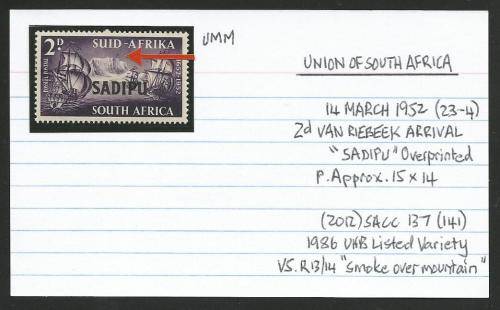 2D SUID-AFRIKA
1652-1952
SADIPU
SOUTH AFRICA
UMM
UNION OF SOUTH AFRICA
14 MARCH 1952 (23-4)
2d VAN RIEBEEK ARRIVAL
"SADIPU" Overprinted
P. Approx. 15 x 14
(2012) SACC 137 (141)
1986 UHB Listed Variety
V5. R13/14 "Smoke over mountain"